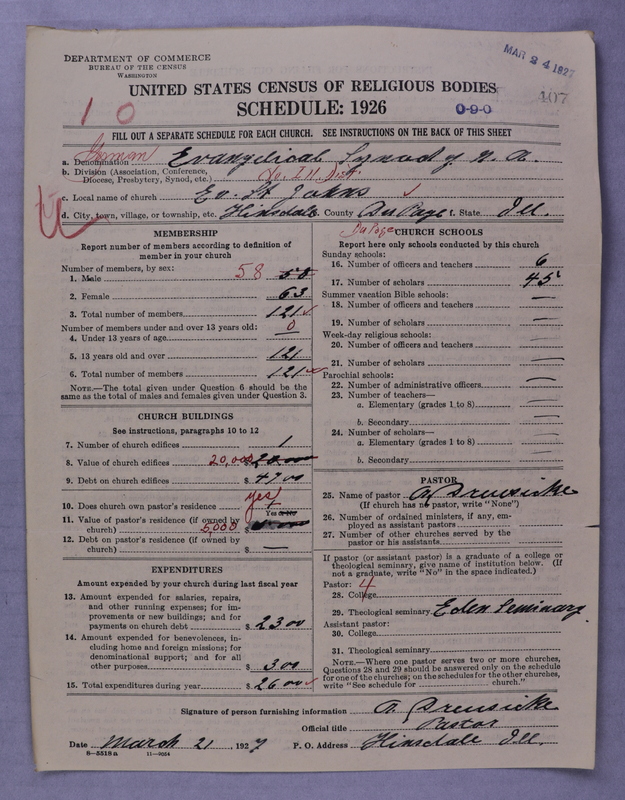 DEPARTMENT OF COMMERCE
BUREAU OF THE CENSUS
WASHINGTON
MAR 24 1927
UNITED STATES CENSUS OF RELIGIOUS BODIES
SCHEDULE: 1926
1 0
0-9-0
107
FILL OUT A SEPARATE SCHEDULE FOR EACH CHURCH. SEE INSTRUCTIONS ON THE BACK OF THIS SHEET
German
a. Denomination Evangelical Synod of N. A.
b. Division (Association, Conference, Diocese, Presbytery, Synod, etc.) No. Ill Dist.
c. Local name of church Ev. St Johns
d. City, town, village, or township, etc. Hinsdale County Du Page f. State Ill.
Du Page
MEMBERSHIP
Report number of members according to definition of
member in your church
Number of members, by sex:
1. Male 58 58
2. Female 63
3. Total number of members 121
Number of members under and over 13 years old:
4. Under 13 years of age 0
5. 13 years old and over 121
6. Total number of members 121
NOTE.—The total given under Question 6 should be the
same as the total of males and females given under Question 3.
CHURCH BUILDINGS
See instructions, paragraphs 10 to 12
7. Number of church edifices 1
8. Value of church edifices 20,000 $
9. Debt on church edifices $ 4700
yes
10. Does church own pastor's residence Yes or No
11. Value of pastor's residence (if owned by
church) 5000 $
12. Debt on pastor's residence (if owned by
church) $ —
EXPENDITURES
Amount expended by your church during last fiscal year
13. Amount expended for salaries, repairs,
and other running expenses; for im-
provements or new buildings; and for
payments on church debt $ 2300
14. Amount expended for benevolences, in-
cluding home and foreign missions; for
denominational support; and for all
other purposes $ 300
15. Total expenditures during year $ 2600
CHURCH SCHOOLS
Report here only schools conducted by this church
Sunday schools:
16. Number of officers and teachers 6
17. Number of scholars 45
Summer vacation Bible schools:
18. Number of officers and teachers —
19. Number of scholars —
Week-day religious schools:
20. Number of officers and teachers —
21. Number of scholars —
Parochial schools:
22. Number of administrative officers —
23. Number of teachers—
a. Elementary (grades 1 to 8) —
b. Secondary —
24. Number of scholars—
a. Elementary (grades 1 to 8) —
b. Secondary —
PASTOR
25. Name of pastor
(If church has no pastor, write "None")
26. Number of ordained ministers, if any, em-
ployed as assistant pastors
27. Number of other churches served by the
pastor or his assistants
If pastor (or assistant pastor) is a graduate of a college or
theological seminary, give name of institution below. (If
not a graduate, write "No" in the space indicated.)
Pastor: 4
28. College
29. Theological seminary Eden Seminary
Assistant pastor:
30. College
31. Theological seminary
NOTE.—Where one pastor serves two or more churches,
Questions 28 and 29 should be answered only on the schedule
for one of the churches; on the schedules for the other churches,
write "See schedule for church."
Signature of person furnishing information
Official title Pastor
Date March 21 1927 P. O. Address Hinsdale Ill.
8—5518 a 11—9054